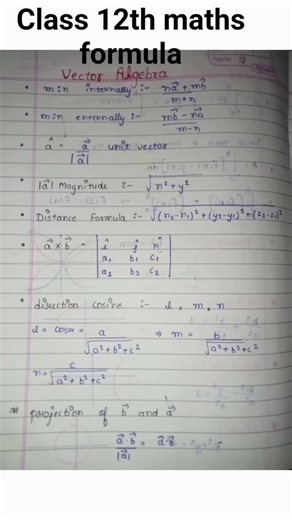 Class 12th maths
formula
Vector Algebra
• m:n internally :- (na⃗ + mb⃗)/(m+n)
• m:n enternally :- (mb⃗ − na⃗)/(m−n)
• â = a⃗/|a⃗| unit vector
• |a⃗| Magnitude :- √(x²+y²)
• Distance Formula :- √((x₂−x₁)²+(y₂−y₁)²+(z₂−z₁)²)
• a⃗×b⃗ = | î ĵ k̂ |
| a₁ b₁ c₁ |
| a₂ b₂ c₂ |
• direction cosine :- l, m, n
l = cosα = a/√(a²+b²+c²) ⇒ m = b/√(a²+b²+c²)
n = c/√(a²+b²+c²)
# projection of b⃗ and a⃗
(a⃗·b⃗)/|a⃗| = a⃗·b⃗